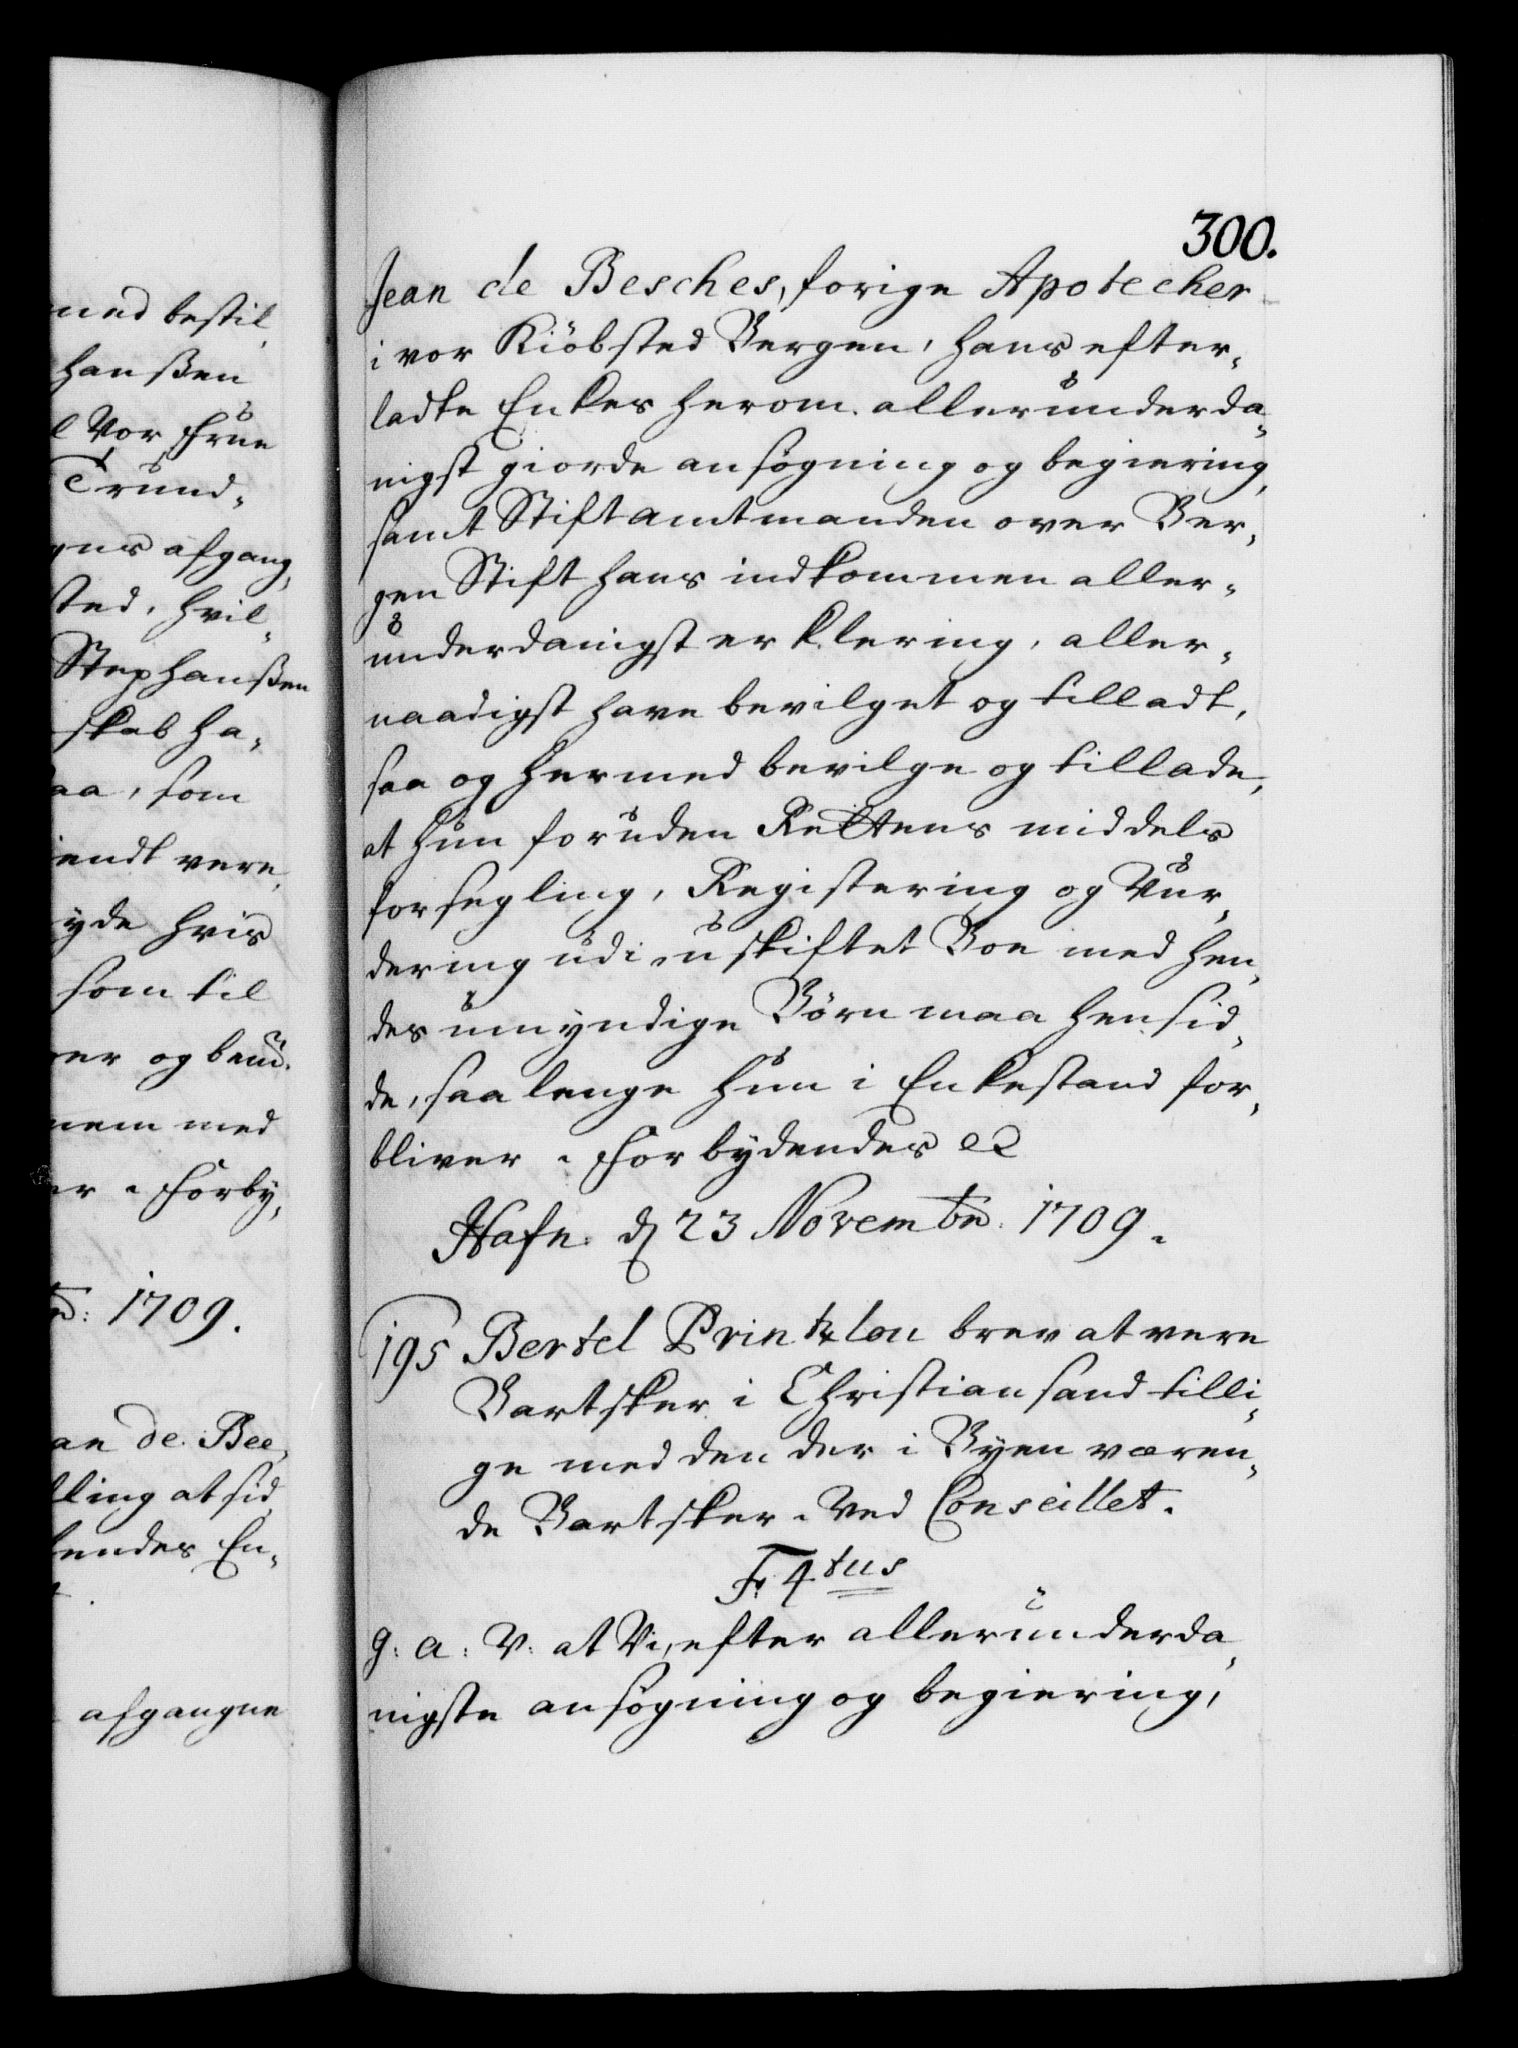 ned bestil,
hanßen
l Vor Frue
Trund,
gens afgang,
sted, hvil,
Stephanßen
skab ha,
aa, som
iendt vere,
yde hvis
som til
er og bend
nem med
er. Forby,
1709.
an de Bee,
ling at sid
hendes En,
afgangne
300.
Jean de Besches, forige Apotecher
i vor Kiöbsted Bergen, hans efter,
ladte Enkes herom allerunderda,
nigst giorde ansøgning og begiering,
samt Stiftamtmanden over Ber,
gen Stift hans indkommen aller,
underdanigst erklering, aller,
naadigst have bevilget og tilladt,
saa og hermed bevilge og tillade,
at hun foruden Rettens middels
forsegling, Registering og Vur,
dering udi uskiftet Boe med hen,
des umyndige Børn maa hensid,
de, saalenge hun i Enkestand for,
bliver. Forbydendes etc
Hafn. d 23 Novembr. 1709.
195 Bertel Printzlou brev at vere
Bartsker i Christiansand tilli,
ge med den der i Byen væren,
de Bartsker. Ved Conseillet.
F. 4tus
G: A: V: at Vi, efter allerunderda,
nigste ansøgning og begiering,